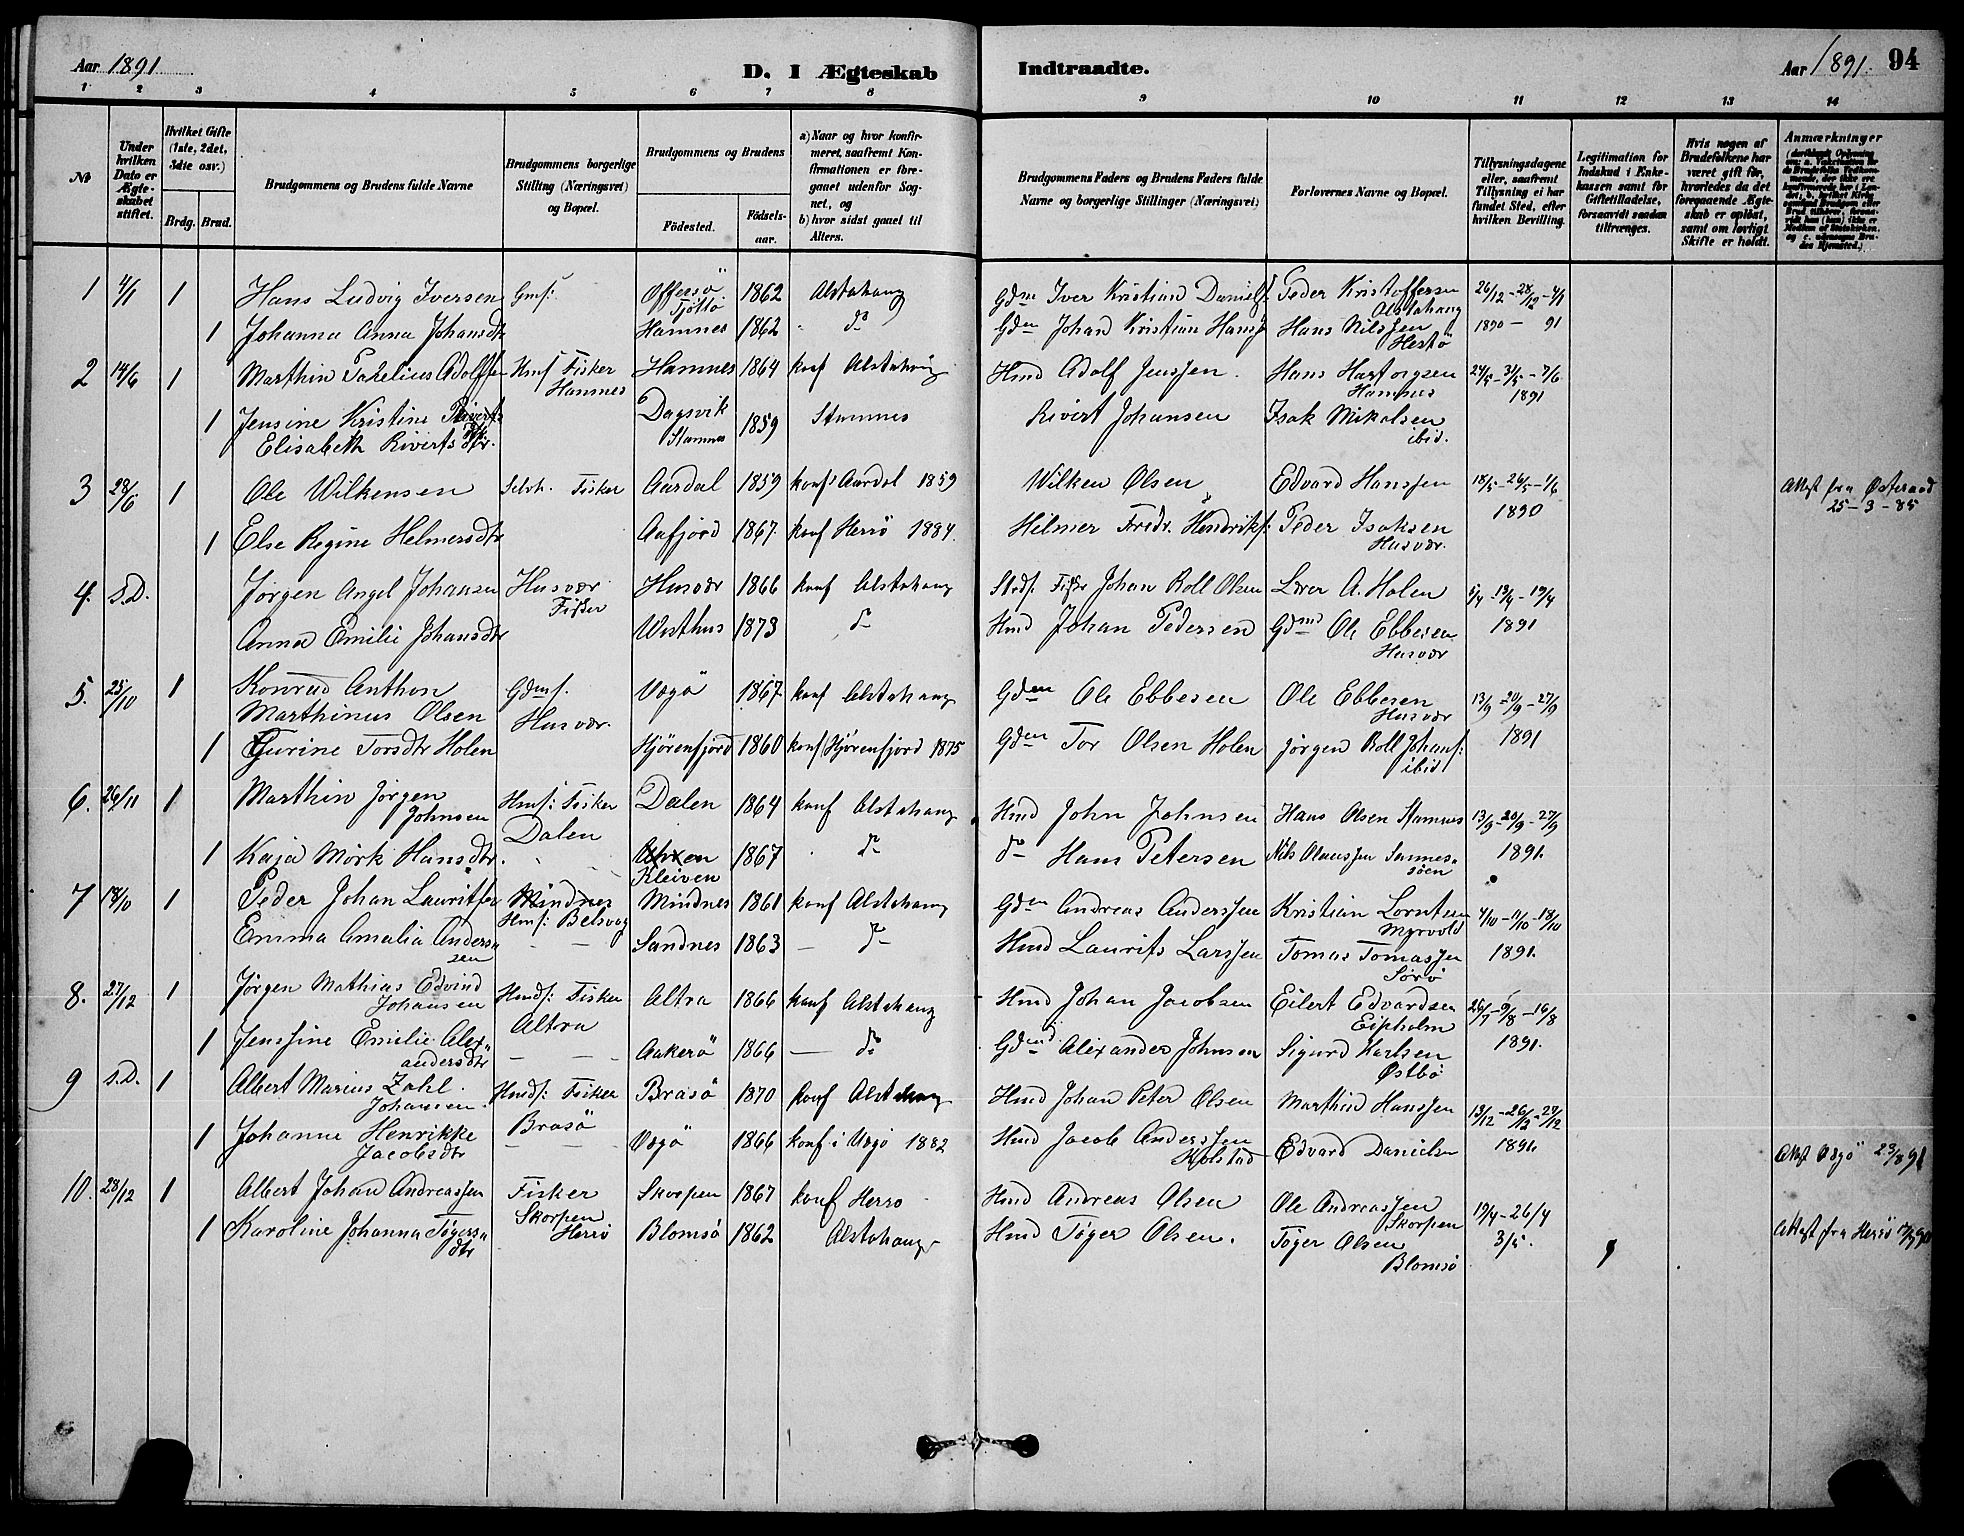 Aar 1891
D. I Ægteskab Indtraadte.
Aar 1891. 94
1 2 3 4 5 6 7 8 9 10 11 12 13 14
No
Under hvilken Dato er Ægteskabet stiftet.
Hvilket Gifte (1ste, 2det, 3die osv.)
Brdg. Brud.
Brudgommens og Brudens fulde Navne
Brudgommens borgerlige Stilling (Næringsvei) og Bopæl.
Brudgommens og Brudens
Födested. Födselsaar.
a) Naar og hvor konfirmeret, saafremt Konfirmationen er foregaaet udenfor Sognet, og
b) hvor sidst gaaet til Alters.
Brudgommens Faders og Brudens Faders fulde Navne og borgerlige Stillinger (Næringsvei)
Forlovernes Navne og Bopæl.
Tillysningsdagene eller, saafremt Tillysning ei har fundet Sted, efter hvilken Bevilling.
Legitimation for Indskud i Enkekassen samt for Giftetilladelse, forsaavidt saadan tiltrænges.
Hvis nogen af Brudefolkene har været gift før, hvorledes da det foregaaende Ægteskab er opløst, samt om lovligt Skifte er holdt.
Anmærkninger
1 4/1 1 Hans Ludvig Iversen Gmf: Offersö Tjöttö 1862 Alstahaug Gdmn Iver Kristian Daniels: Peder Kristoffersen Alstahaug 26/12 - 28/12 - 4/1
1 Johanna Anna Johansdtr Hamnes 1862 do Gdmn Johan Kristian Hansf Hans Nilssen Hestö 1890 - 91
2 14/6 1 Marthin Pahelius Adolfsen Hmf Fisker Hamnes Hamnes 1864 konf Alstahaug Hmd Adolf Jenssen. Hans Hartvigsen Hamnes 24/5 - 31/5 - 7/6 1891
1 Jensine Kristine Elisabeth Rivertsdtr. Dagsvik Stamnes 1859 Stamnes Rivert Johansen Isak Mikalsen ibid.
3 28/6 1 Ole Wilkensen Selvh. Fisker Aardal 1859 konf Aardal 1859 Wilken Olsen Edvard Hanssen 18/5 - 26/5 - 1/6 1890 Attest fra 25-3-85
1 Else Regine Helmersdtr Aafjord 1867. konf Herrö 1884. Hilmer Fredr. Hendriks: Peder Isaksen Husvær.
4. S.D. Jørgen Angel Johansen Husvær Fisker Husvær 1866 konf Alstahaug Fisker Johan Roll Olsen Lærer A. Holen 5/4 - 12/4 - 19/4
Anna Emilie Johansdtr 1873 do Hmd Johan Pedersen Gdmd Ole Ebbesen Husvær 1891
5. 25/10 1 Konrad Anthon Marthinus Olsen Gdmf. Husvær. Vægö 1867 konf Alstahaug Gdmn Ole Ebbesen Ole Ebbesen Husvær 13/9 - 20/9 - 27/9
1 Gurine Torsdtr Holen Hjörenfjord 1860 konf Hjörenfjord 1875 Gdmn Tor Olsen Holen Jørgen Roll Johans: ibid 1891
6. 26/11 1 Marthin Jørgen Johnsen Hmf: Fisker Dalen Dalen 1864 konf Alstahaug Hmd John Johnsen Hans Olsen Stamnes 13/9 - 20/9 - 27/9
1 Kaja Mörk Hansdtr. Kleiven 1867 do do Hans Petersen Nils Olaussen Sannessöen 1891.
7 18/10 1 Peder Johan Lauritsen Mindnes Hmf: Belsvag Mindnes 1861 konf Alstahaug Gdmn Andreas Anderssen Kristian Lorntsen Myrvold 4/10 - 11/10 - 18/10
Emma Amalia Anderssen Sandnes 1863 - do Hmd Laurits Larssen Tomas Tomassen Sörö 1891.
8. 27/12 1 Jørgen Mathias Edvind Johansen Hmds: Fisker Altra Altra 1866 konf Alstahaug Hmd Johan Jacobsen Eilert Edvardsen Eipholm 26/7 - 9/8 - 16/8
1 Jenssine Emilie Alexandersdtr Aakerö 1866 - do Gdmnd Alexander Johnsen Sigurd Karlsen Østbö 1891.
9 S.D. 1 Albert Marius Zahl. Johansen. Hmds: Fisker Brasö Brasö 1870 konf Alstahaug Hmd Johan Peter Olsen Marthin Hanssen 13/12 - 26/12 - 27/12
1 Johanne Henrikke Jacobsdtr Vægö 1866 konf i Vægö 1882 Hmd Jacob Anderssen Kolstad Edvard Danielsen 1891. Attest Vegö 23/8 91
10. 28/12 1 Albert Johan Andreassen Fisker Skorpen Herrö Skorpen 1867 konf Herrö Hmd Andreas Olsen Ole Andreassen Skorpen 19/4 - 26/4
1 Karoline Johanna Tøgersdtr Blomsö 1862 Alstahaug Hmd Tøger Olsen. Tøger Olsen Blomsö 3/5. Attest fra Herrö